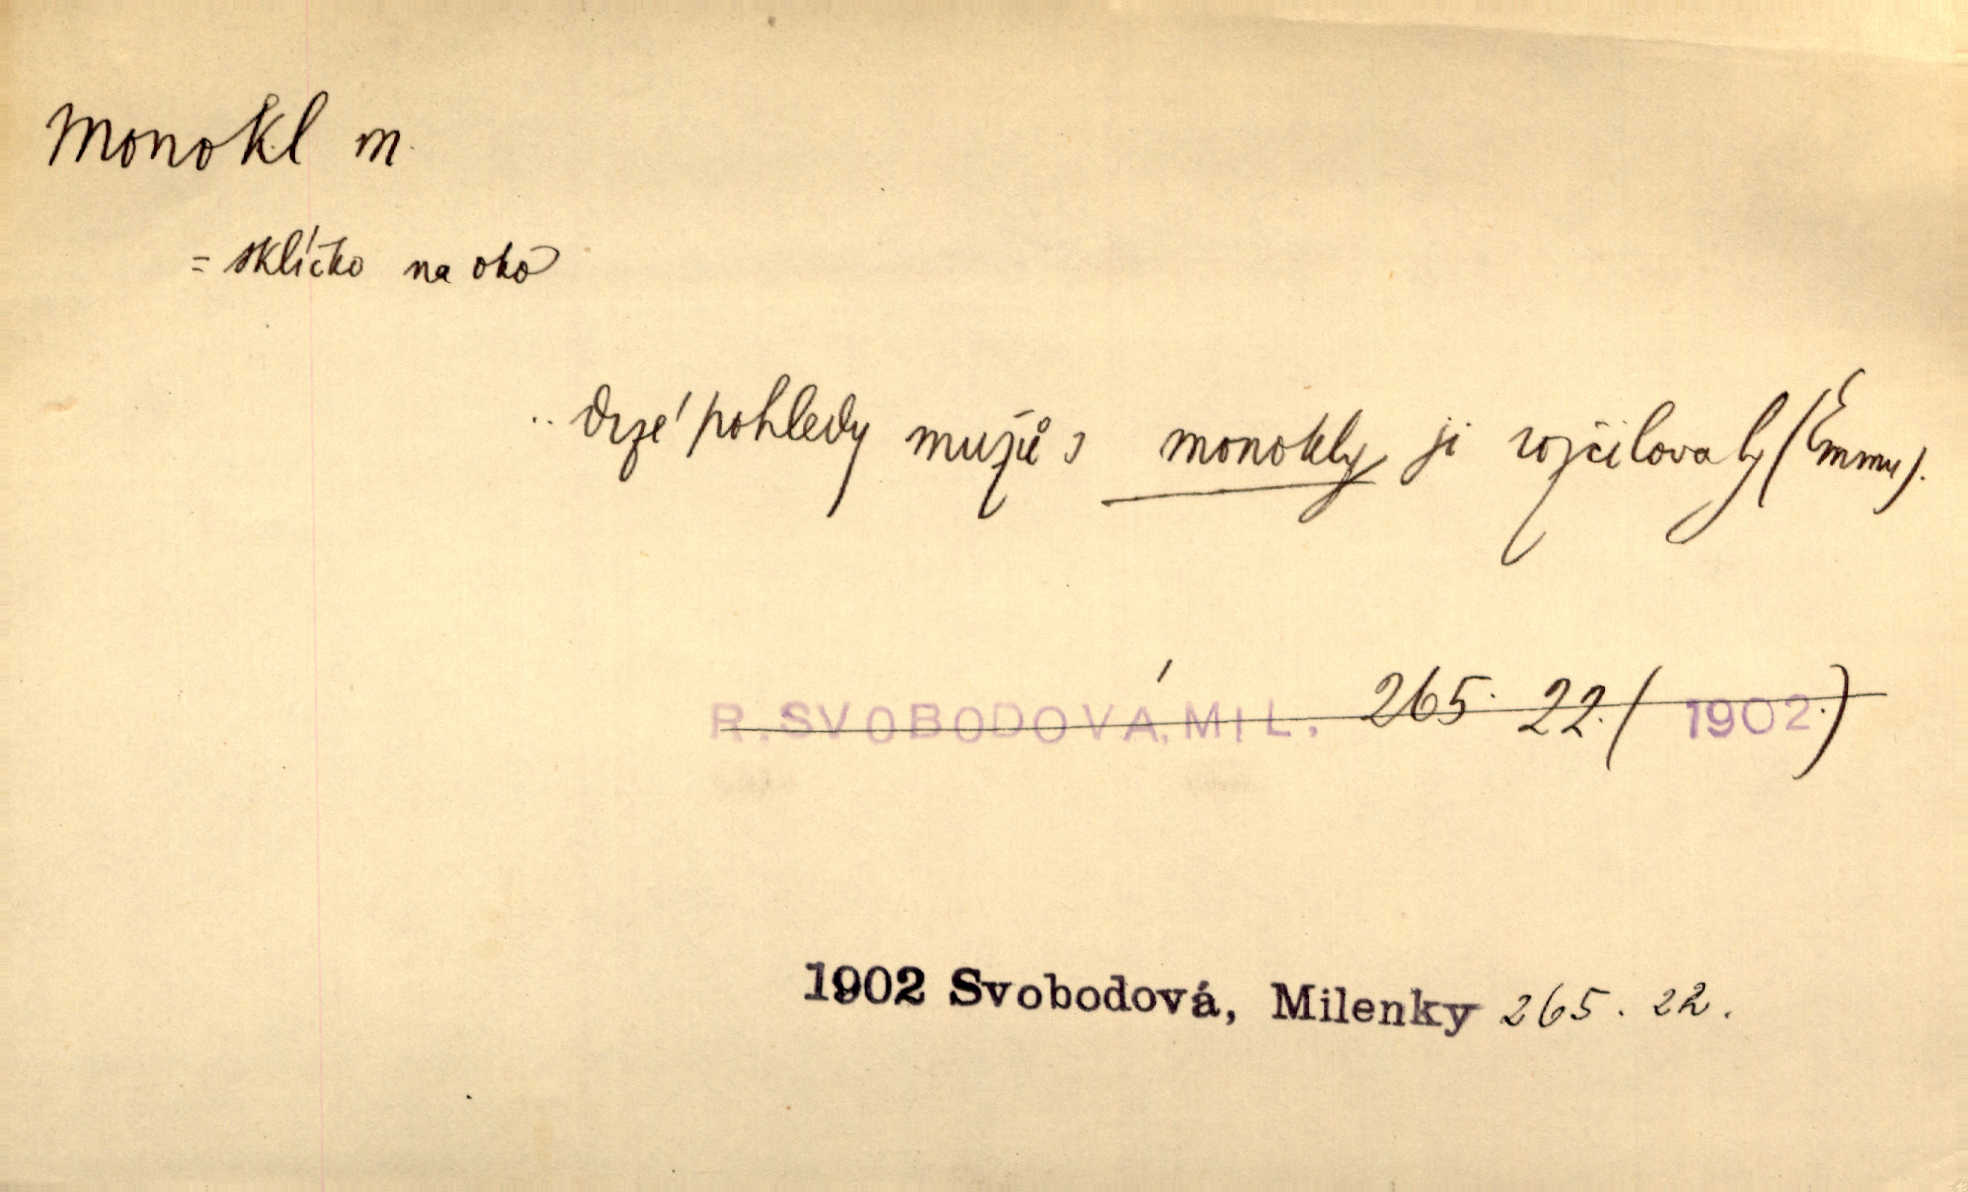 Monokl m.
= sklíčko na oko
.. drzé pohledy mužů s monokly ji rozčilovaly (Emmu).
R. SVOBODOVÁ, MIL. 265. 22. (1902.)
1902 Svobodová, Milenky 265. 22.